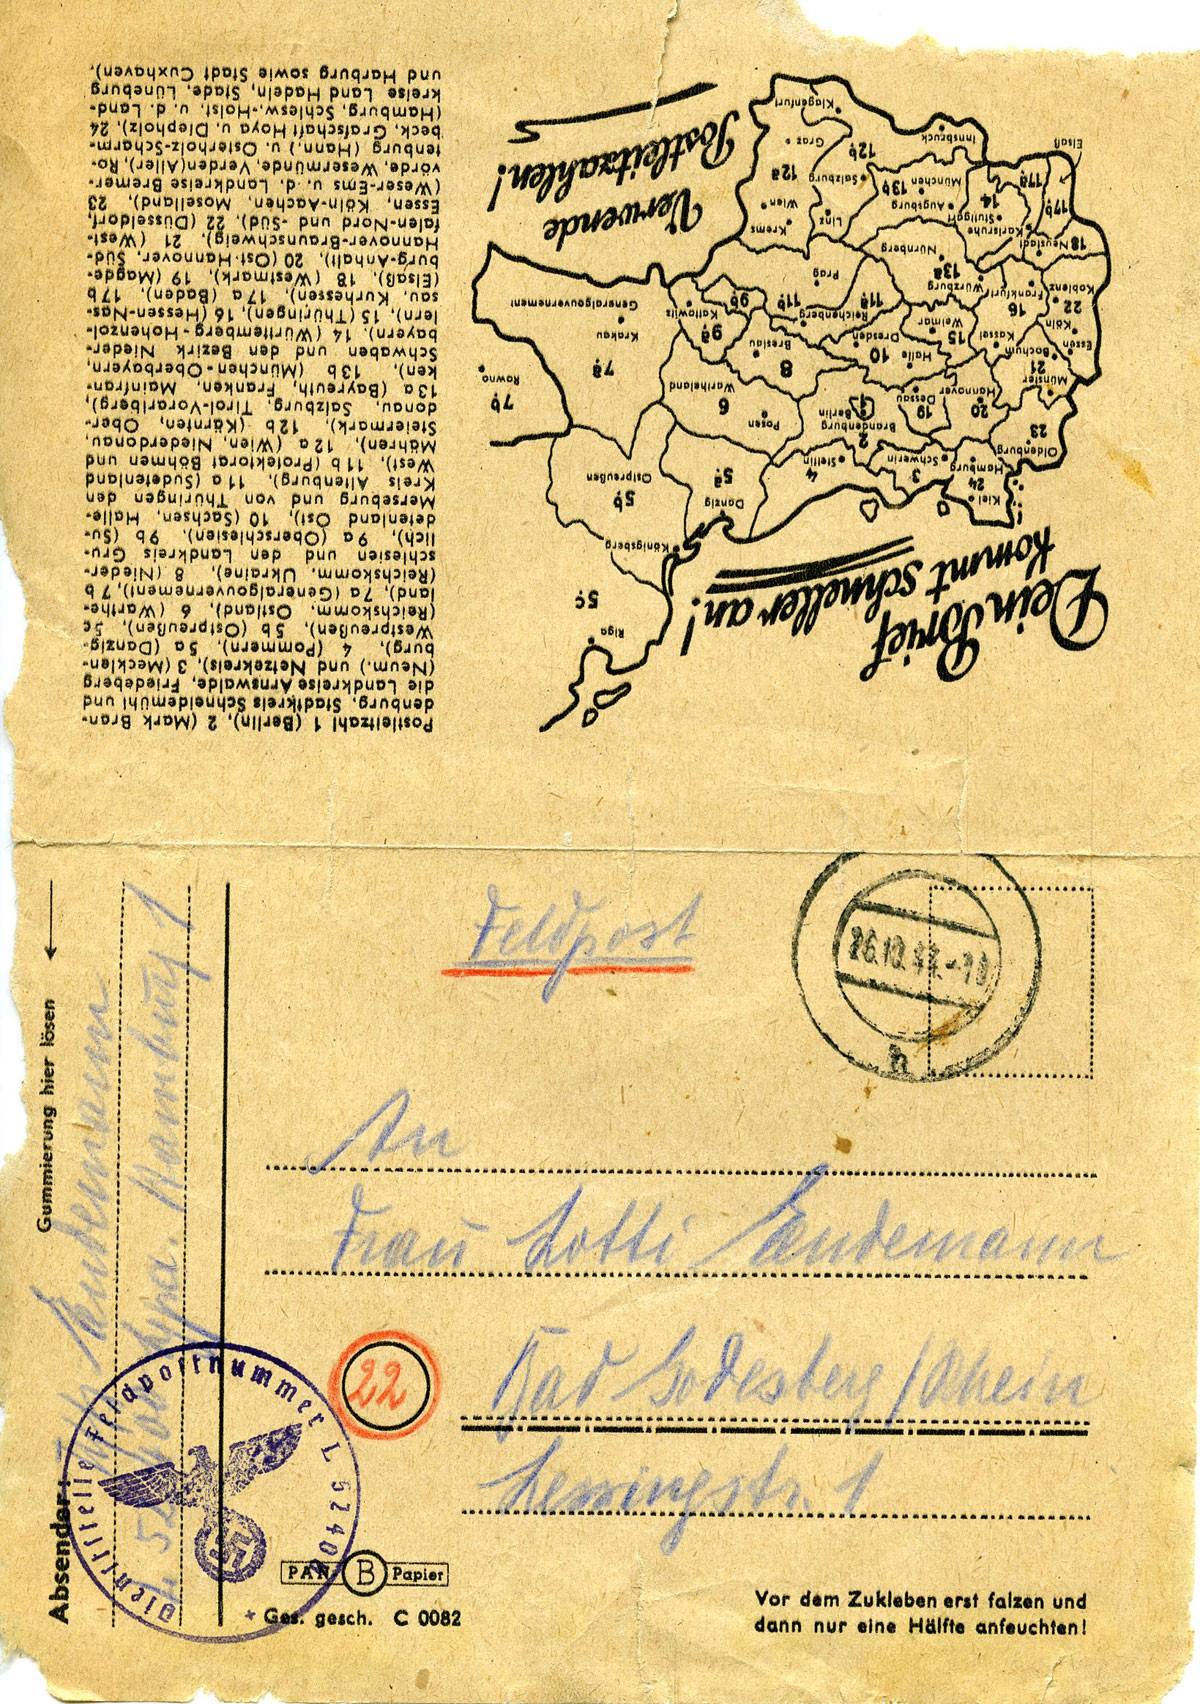 Dein Brief
kommt schneller an!
Verwende
Postleitzahlen!
Riga
5c
Königsberg
Kiel
24
Hamburg
3
Schwerin
4
Stettin
Danzig
5a
5b
Ostpreußen
23
Oldenburg
20
Hannover
19
Dessau
2
Brandenburg
1
Berlin
Posen
6
Wartheland
7b
Rowno
7a
Krakau
Generalgouvernement
Münster
21
Bochum
Essen
Köln
22
Koblenz
Kassel
16
Frankfurt
15
Weimar
Halle
10
Dresden
8
Breslau
9a
Kattowitz
9b
Reichenberg
11a
11b
Prag
13a
Würzburg
Nürnberg
18
Neustadt
Karlsruhe
Stuttgart
14
17a
17b
Elsaß
Augsburg
München
13b
Linz
Krems
Wien
12a
Salzburg
12b
Graz
Innsbruck
Klagenfurt
Postleitzahl 1 (Berlin), 2 (Mark Bran-
denburg, Stadtkreis Schneidemühl und
die Landkreise Arnswalde, Friedeberg
(Neum.) und Netzekreis), 3 (Mecklen-
burg), 4 (Pommern), 5a (Danzig-
Westpreußen), 5b (Ostpreußen), 5c
(Reichskomm. Ostland), 6 (Warthe-
land), 7a (Generalgouvernement), 7b
(Reichskomm. Ukraine), 8 (Nieder-
schlesien und den Landkreis Gru-
lich), 9a (Oberschlesien), 9b (Su-
detenland Ost), 10 (Sachsen, Halle-
Merseburg und von Thüringen den
Kreis Altenburg), 11a (Sudetenland
West), 11b (Protektorat Böhmen und
Mähren), 12a (Wien, Niederdonau,
Steiermark), 12b (Kärnten, Ober-
donau, Salzburg, Tirol-Vorarlberg),
13a (Bayreuth, Franken, Mainfran-
ken), 13b (München-Oberbayern,
Schwaben und den Bezirk Nieder-
bayern), 14 (Württemberg-Hohenzol-
lern), 15 (Thüringen), 16 (Hessen-Nas-
sau, Kurhessen), 17a (Baden), 17b
(Elsaß), 18 (Westmark), 19 (Magde-
burg-Anhalt), 20 (Ost-Hannover, Süd-
Hannover-Braunschweig), 21 (West-
falen-Nord und -Süd), 22 (Düsseldorf,
Essen, Köln-Aachen, Moselland), 23
(Weser-Ems u. d. Landkreise Bremer-
vörde, Wesermünde, Verden(Aller), Ro-
tenburg (Hann.) u. Osterholz-Scharm-
beck, Grafschaft Hoya u. Diepholz), 24
(Hamburg, Schlesw.-Holst. u. d. Land-
kreise Land Hadeln, Stade, Lüneburg
und Harburg sowie Stadt Cuxhaven).
Feldpost
h
An
Frau Lotti Endemann
22
Bad Godesberg/Rhein
Lessingstr. 1
Gummierung hier lösen
Absender:
Endemann
Hamburg 1
Dienststelle Feldpostnummer L 52400
PAN B Papier
Ges. gesch. C 0082
Vor dem Zukleben erst falzen und
dann nur eine Hälfte anfeuchten!